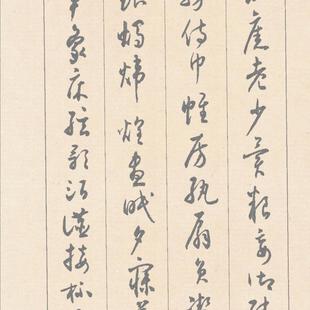 舊老少異粮妾御績
紡侍巾帷房紈扇員潔
銀燭煒煌晝眠夕寐
象床弦歌酒讌接杯